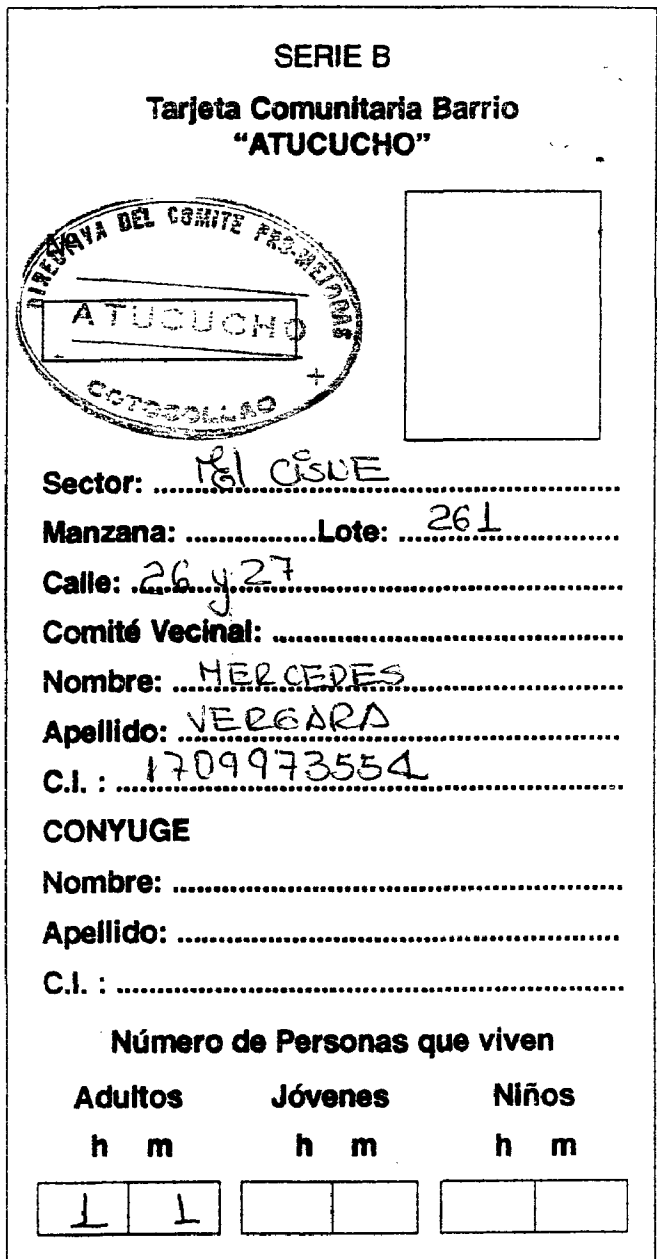 SERIE B
Tarjeta Comunitaria Barrio
“ATUCUCHO”
DIRECTIVA DEL COMITE PRO-MEJORAS
ATUCUCHO
COTOCOLLAO
Sector: El CISNE
Manzana: Lote: 261
Calle: 26 y 27
Comité Vecinal:
Nombre: MERCEDES
Apellido: VERGARA
C.I. : 1709973554
CONYUGE
Nombre:
Apellido:
C.I. :
Número de Personas que viven
Adultos Jóvenes Niños
h m h m h m
1 1